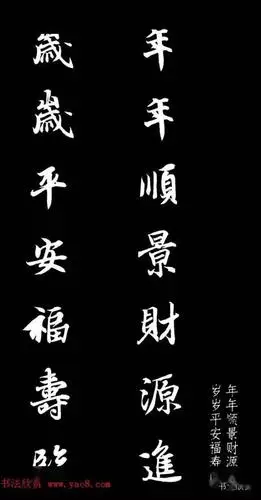 年年順景財源進
歲歲平安福壽臨
年年顺景财源
岁岁平安福寿
书法欣赏
www.yac8.com